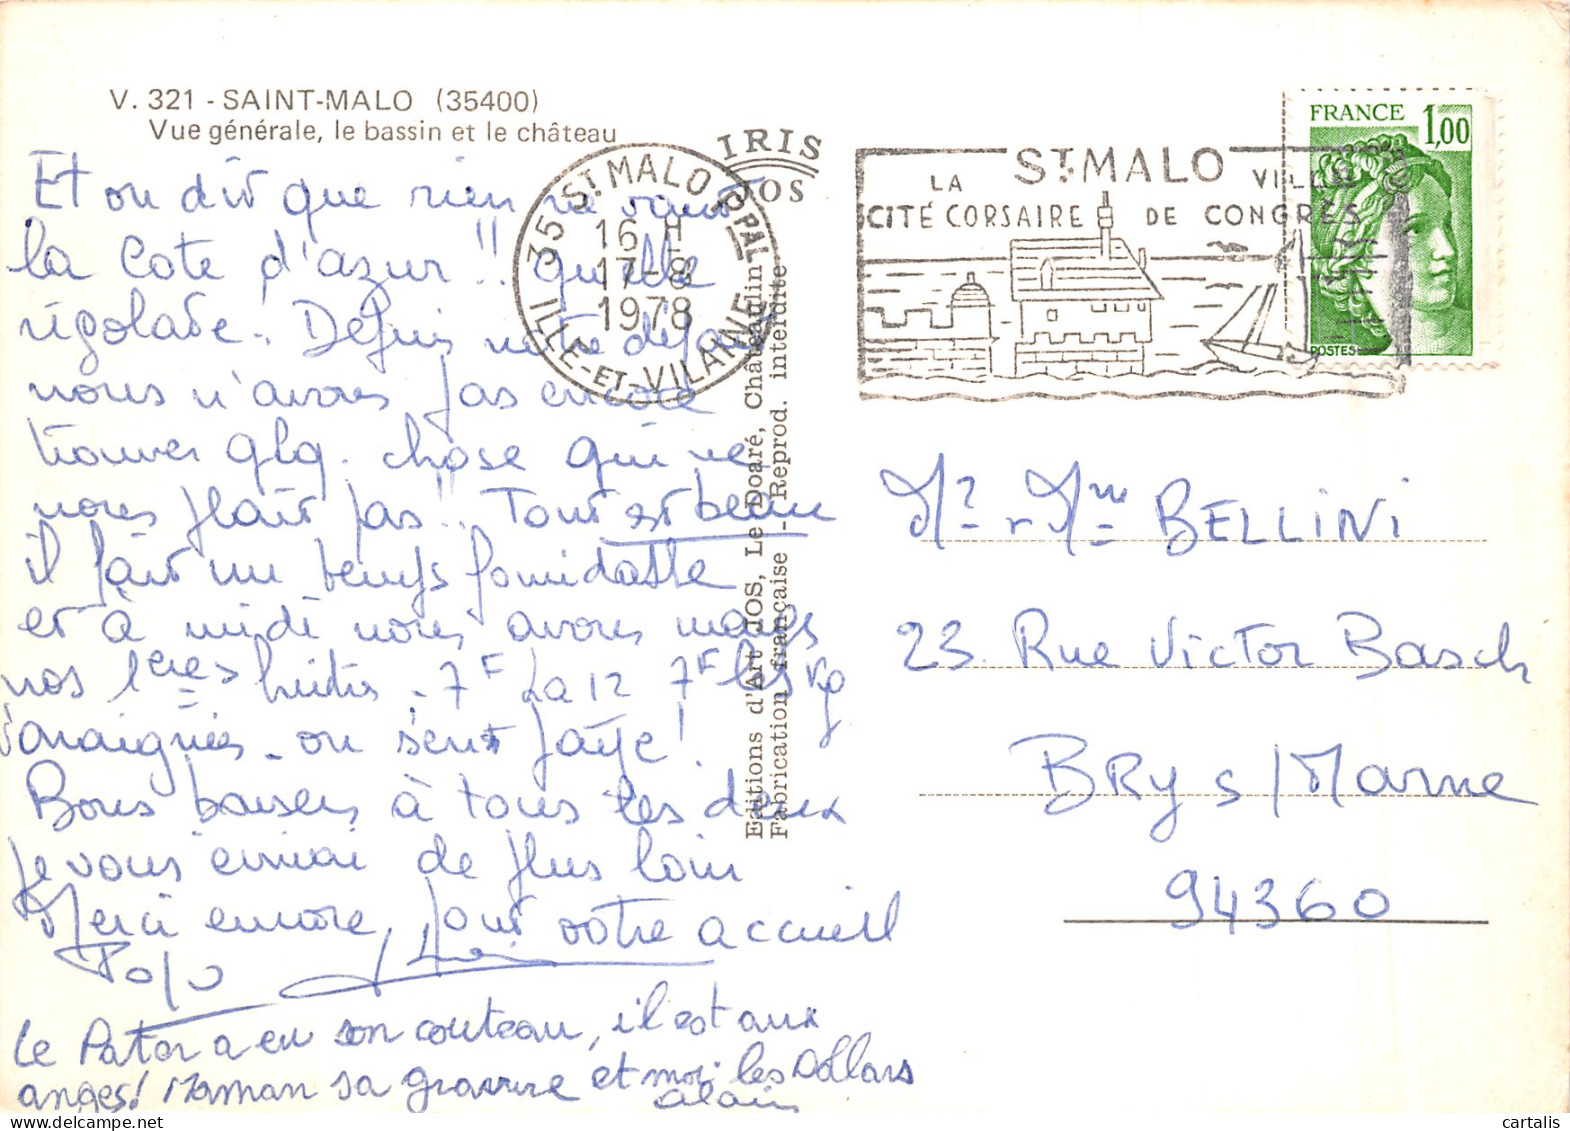 V. 321 - SAINT-MALO (35400)
Vue générale, le bassin et le château
Et on dit que rien ne vaut
la Cote d'azur!! Quelle
rigolade.. Depuis notre départ
nous n'avons pas encore
trouver qlq. chose qui ne
nous plait pas!.. Tout est beau
il fait un temps formidable
et à midi nous avons mangés
nos 1eres huitres - 7F La 12 7F les Kg
d'araignées - on s'ent paye!
Bons baisers à tous les deux
Je vous envoi de plus loin
Merci encore, pour votre accueil
Le Pator a eu son couteau, il est aux
anges! Maman sa gravure et moi les Dollars
alain
IRIS
JOS
Editions d'Art JOS, Le Doaré, Châteaulin
Fabrication française - Reprod. interdite
35 ST MALO PPAL
16 H
17-8
1978
ILLE-ET-VILAINE
ST MALO
LA VILLE
CITÉ CORSAIRE DE CONGRÈS
FRANCE 1,00
POSTES
Mr et Mme BELLINI
23. Rue Victor Basch
BRY s/Marne
94360
cartalis